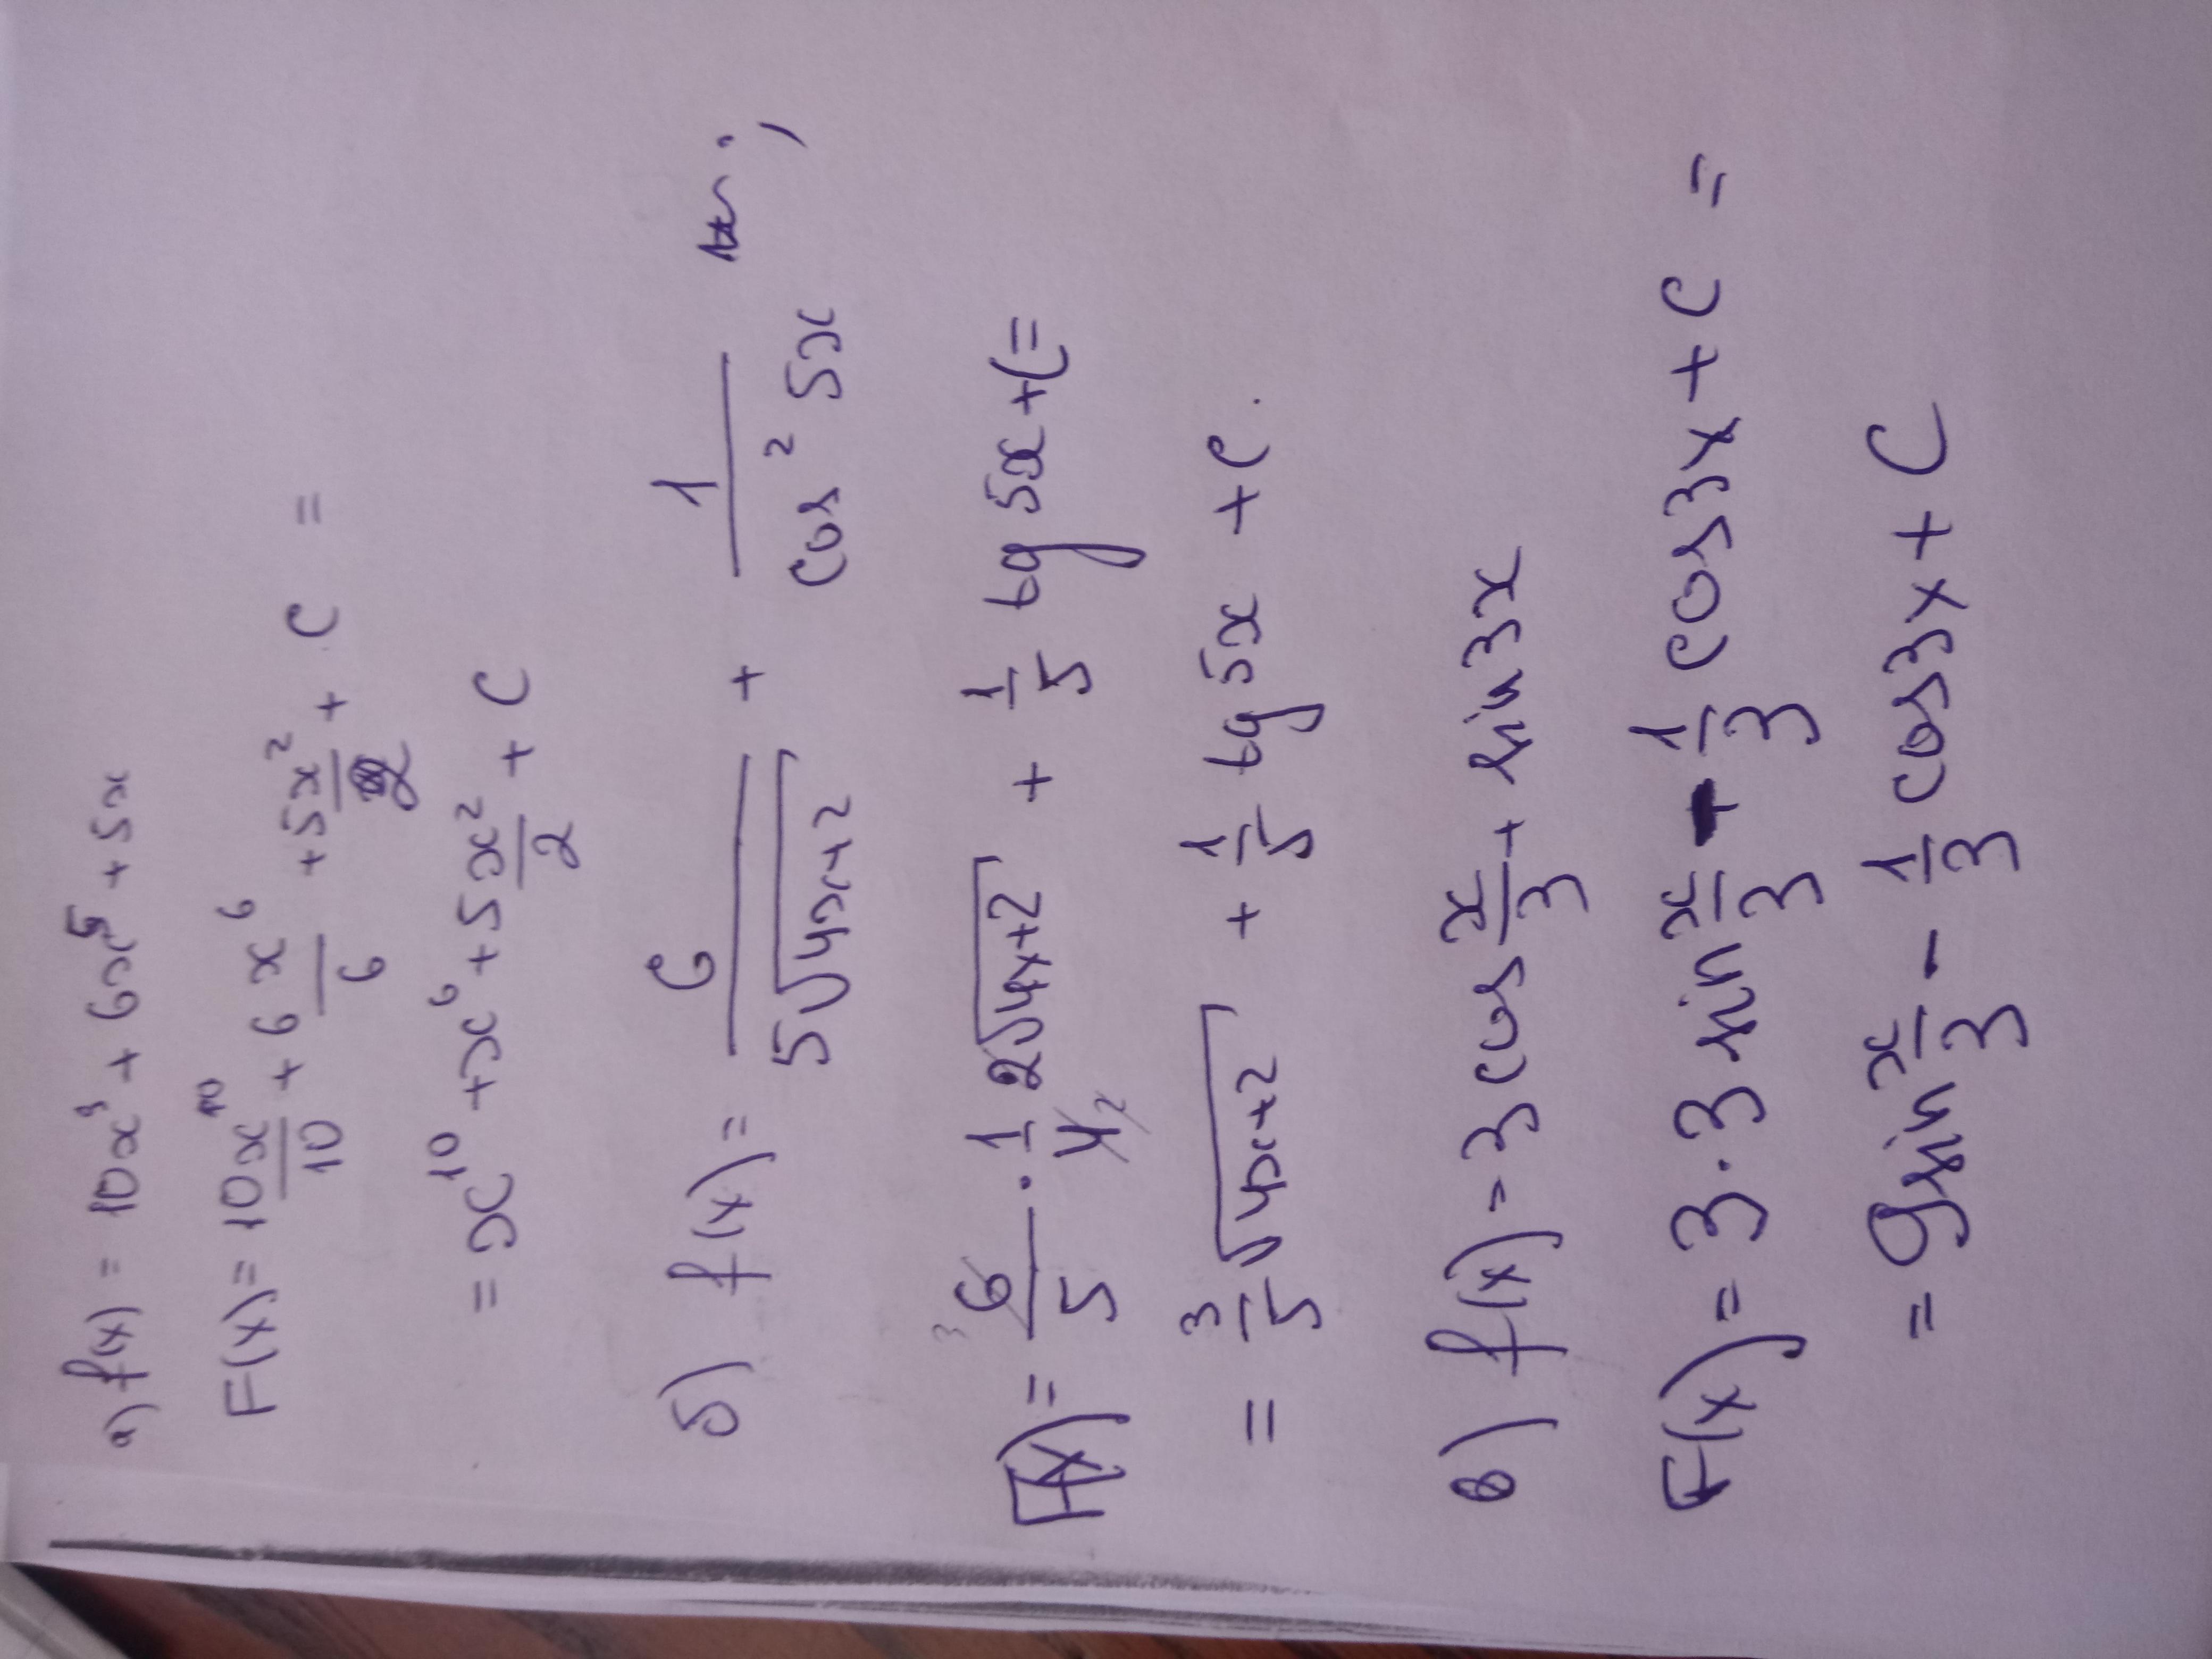 а) f(x) = 10x⁹ + 6x⁵ + 5x
F(x) = 10x¹⁰/10 + 6x⁶/6 + 5x²/2 + C =
= x¹⁰ + x⁶ + 5x²/2 + C
б) f(x) = 6/(5√(4x+2)) + 1/(cos² 5x) ;
F(x) = 6/5 · 1/4 2√(4x+2) + 1/5 tg 5x + C =
= 3/5 √(4x+2) + 1/5 tg 5x + C.
в) f(x) = 3 cos x/3 + sin 3x
F(x) = 3 · 3 sin x/3 - 1/3 cos 3x + C =
= 9 sin x/3 - 1/3 cos 3x + C